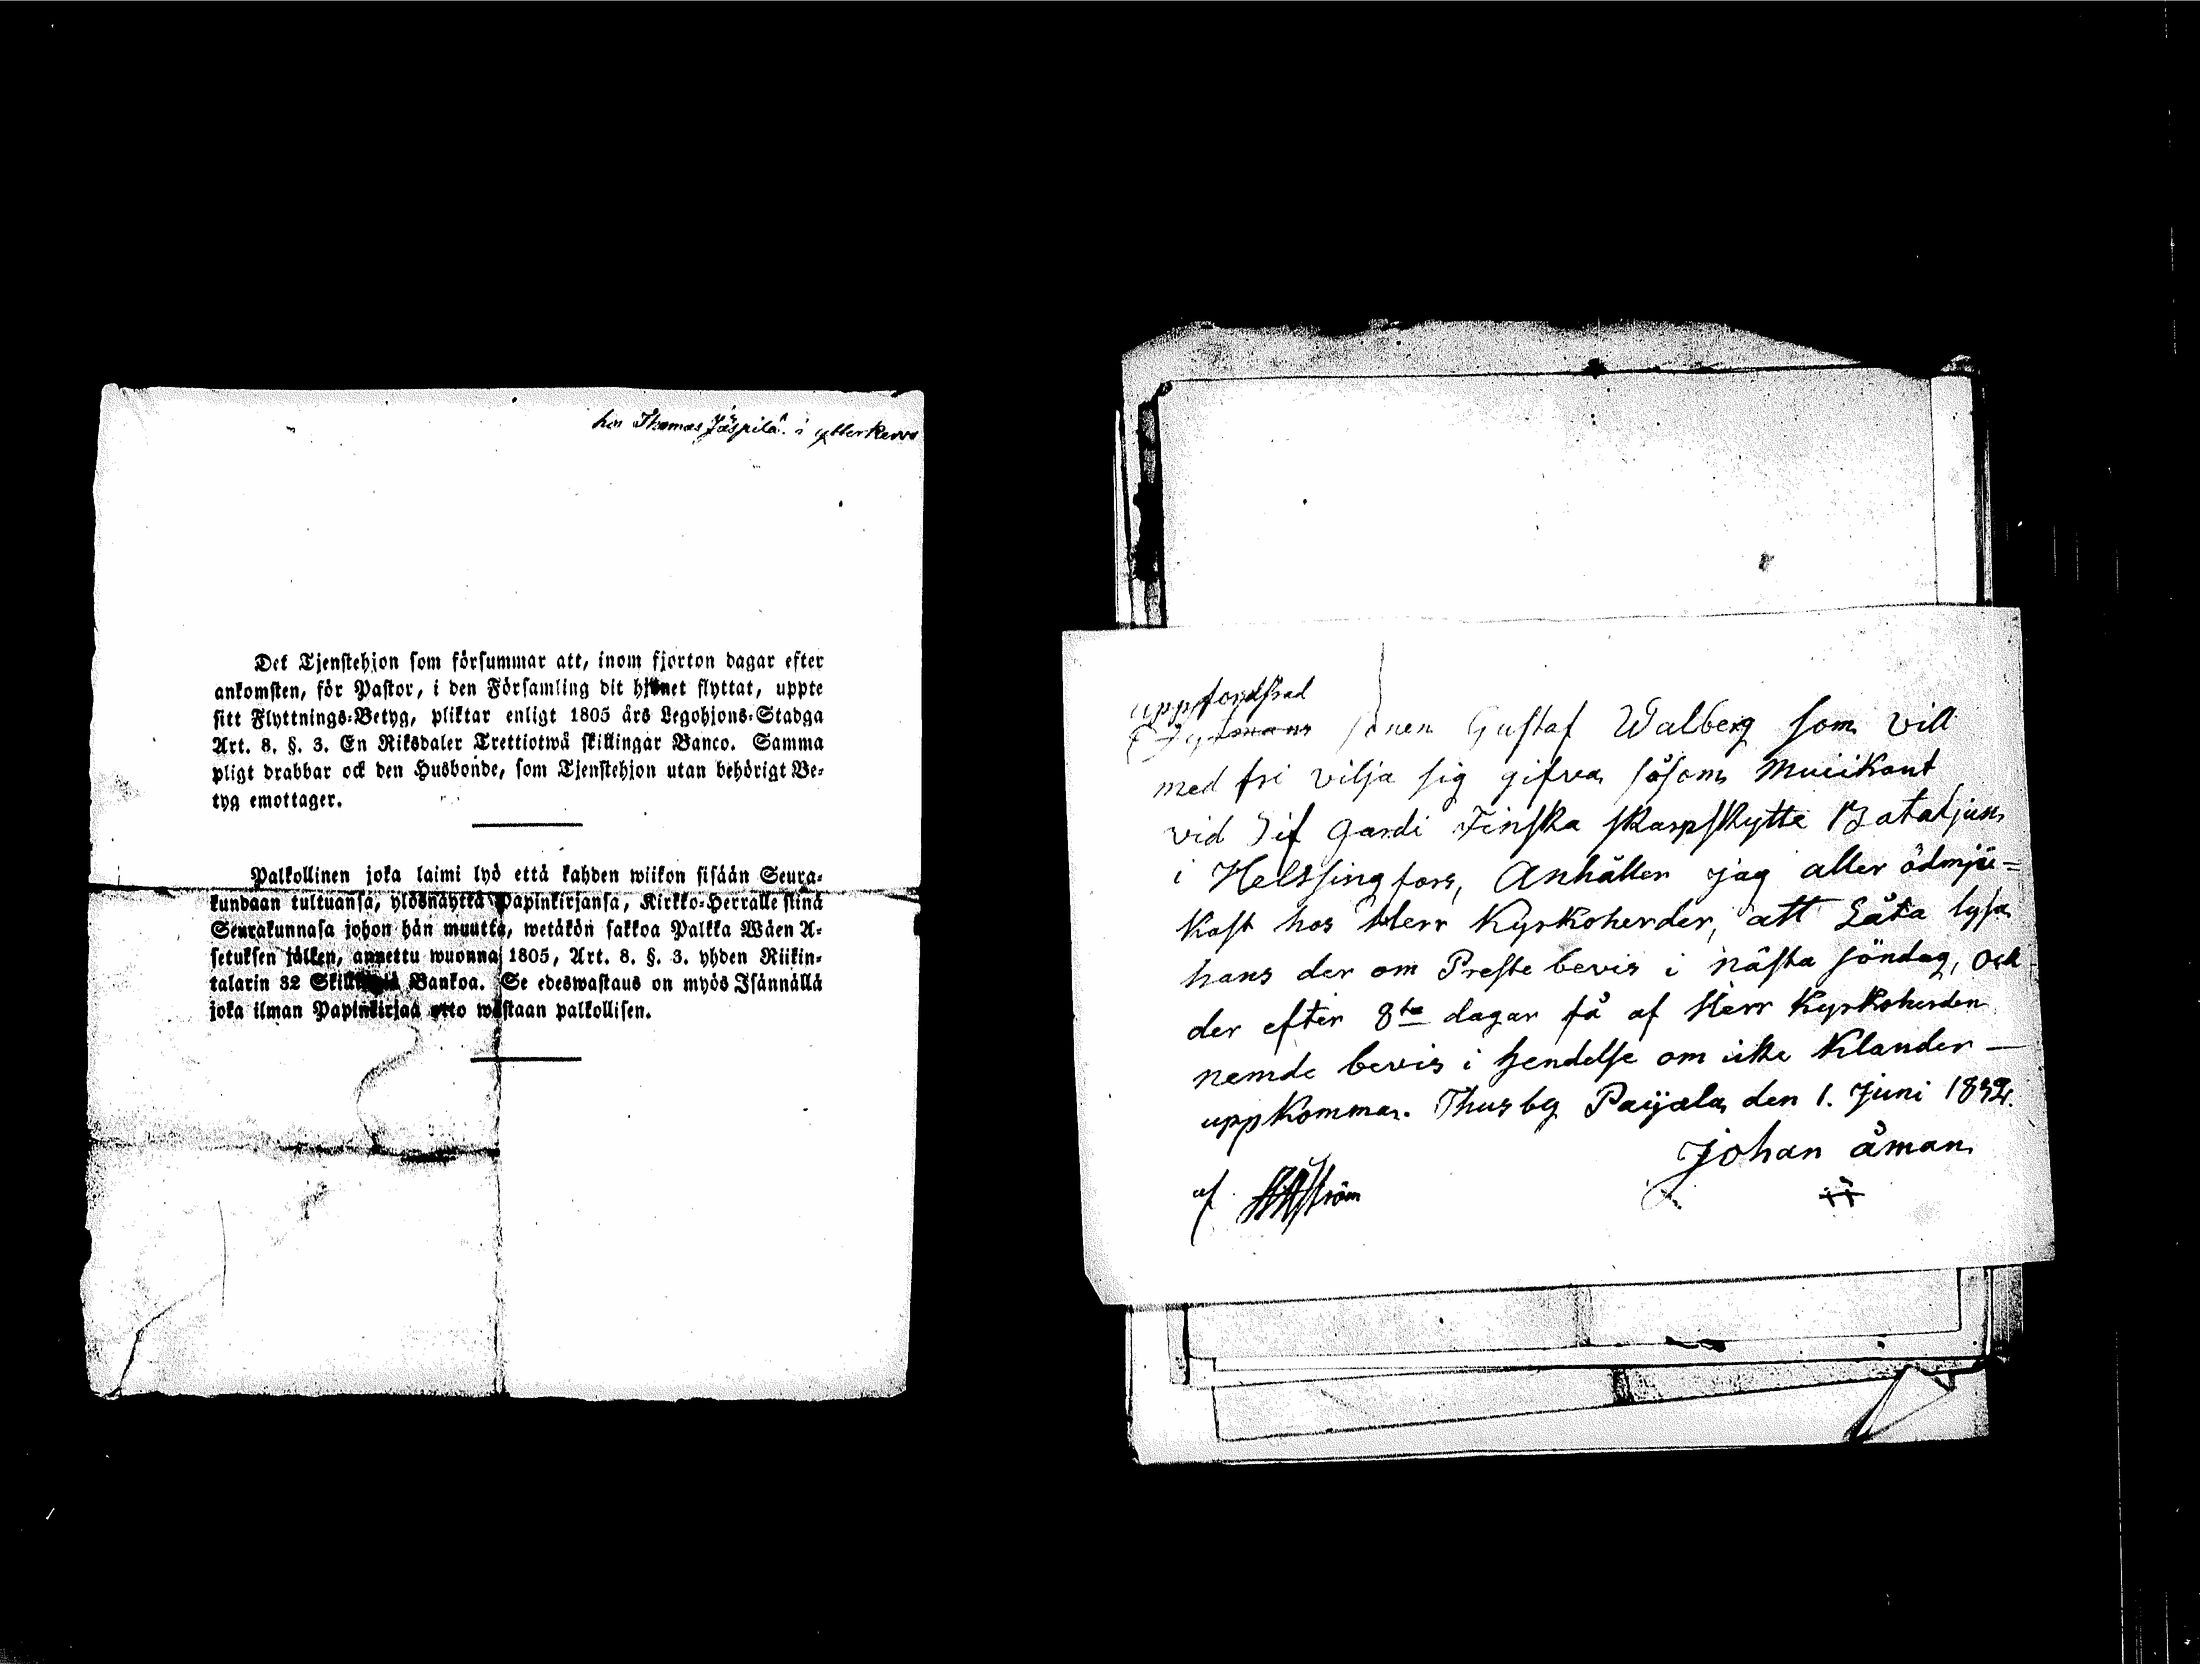 hos Thomas Jäspilä i ytterkervo
Det Tjenstehjon som försummar att, inom fjorton dagar efter
ankomsten, för Pastor, i den Församling dit hjonet flyttat, uppte
sitt Flyttnings-Betyg, pliktar enligt 1805 års Legohjons-Stadga
Art. 8. §. 3. En Riksdaler Trettiotwå skillingar Banco. Samma
pligt drabbar ock den Husbonde, som Tjenstehjon utan behörigt Be-
tyg emottager.
Palkollinen joka laimi lyö että kahden wiikon sisään Seura-
kundaan tultuansa, ylösnäyttä Papinkirjansa, Kirkko-Herralle siinä
Seurakunnasa johon hän muutta, wetäkön sakkoa Palkka Wäen A-
setuksen jälken, annettu wuonna 1805, Art. 8. §. 3. yhden Riikin-
talarin 32 Skillingiä Bankoa. Se edeswastaus on myös Isännällä
joka ilman Papinkirjaa otto wastaan palkollisen.
uppfordrad
sonen Gustaf Walberg som vill
med fri vilja sig gifva såsom Muciikant
vid Lif Gardi Finska skarpskytte Bataljun
i Helssingfors, Anhåller jag aller ödmju=
kast hos Herr Kyrkoherder, att Låta lysa
hans der om Preste bevis i nästa söndag, och
der efter 8ta dagar få af Herr Kyrkoherden
nemde bevis i hendelse om icke Klander —
uppkommer. Thusby Paijala den 1. Juni 1832.
Johan åman
af